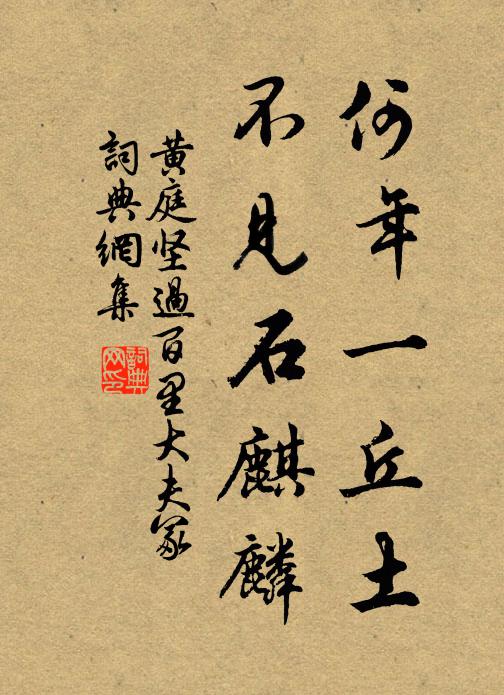 何年一丘土
不見石麒麟
黄庭坚過百里大夫冢
詞典網集
詞典
网印